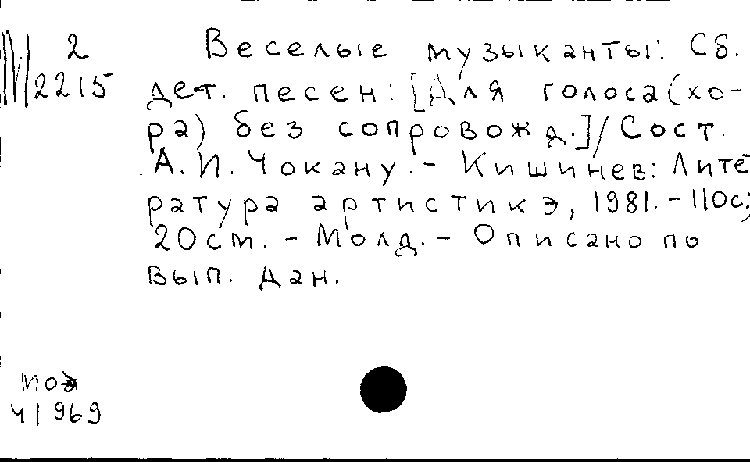 2
2215
Веселые музыканты: Сб.
дет. песен: [Для голоса (хо-
ра) без сопровожд.]/Сост.
А.И. Чокану. - Кишинев: Лите
ратура артистикэ, 1981. - 110с;
20см. - Молд. - Описано по
вып. дан.
41969